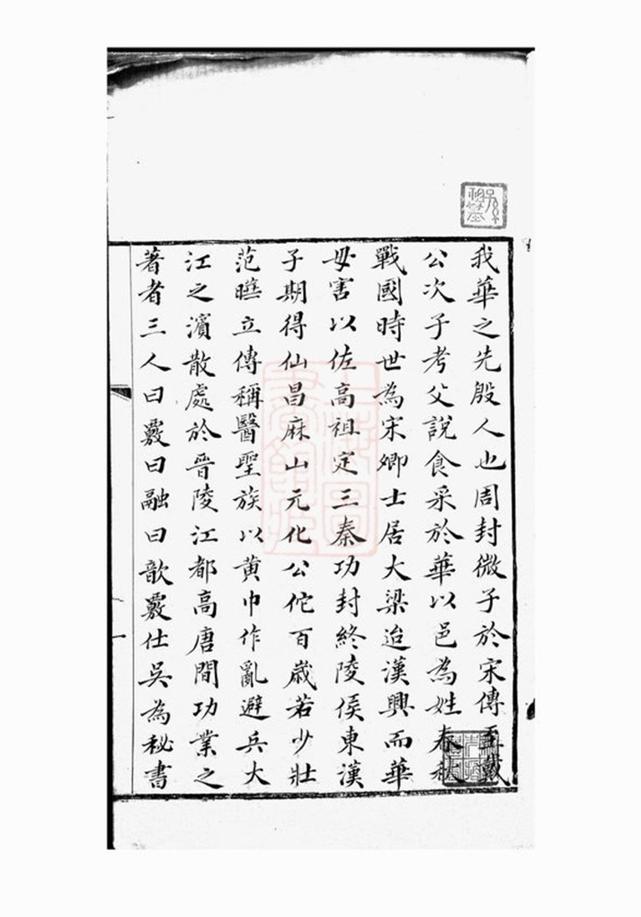 我華之先殷人也周封微子於宋傳至戴
公次子考父說食采於華以邑為姓春秋
戰國時世為宋卿士居大梁迨漢興而華
毋害以佐高祖定三秦功封終陵侯東漢
子期得仙昌麻山元化公佗百歳若少壯
范曄立傳稱醫聖族以黄巾作亂避兵大
江之濱散處於晉陵江都高唐間功業之
著者三人曰覈曰融曰歆覈仕吳為秘書
一